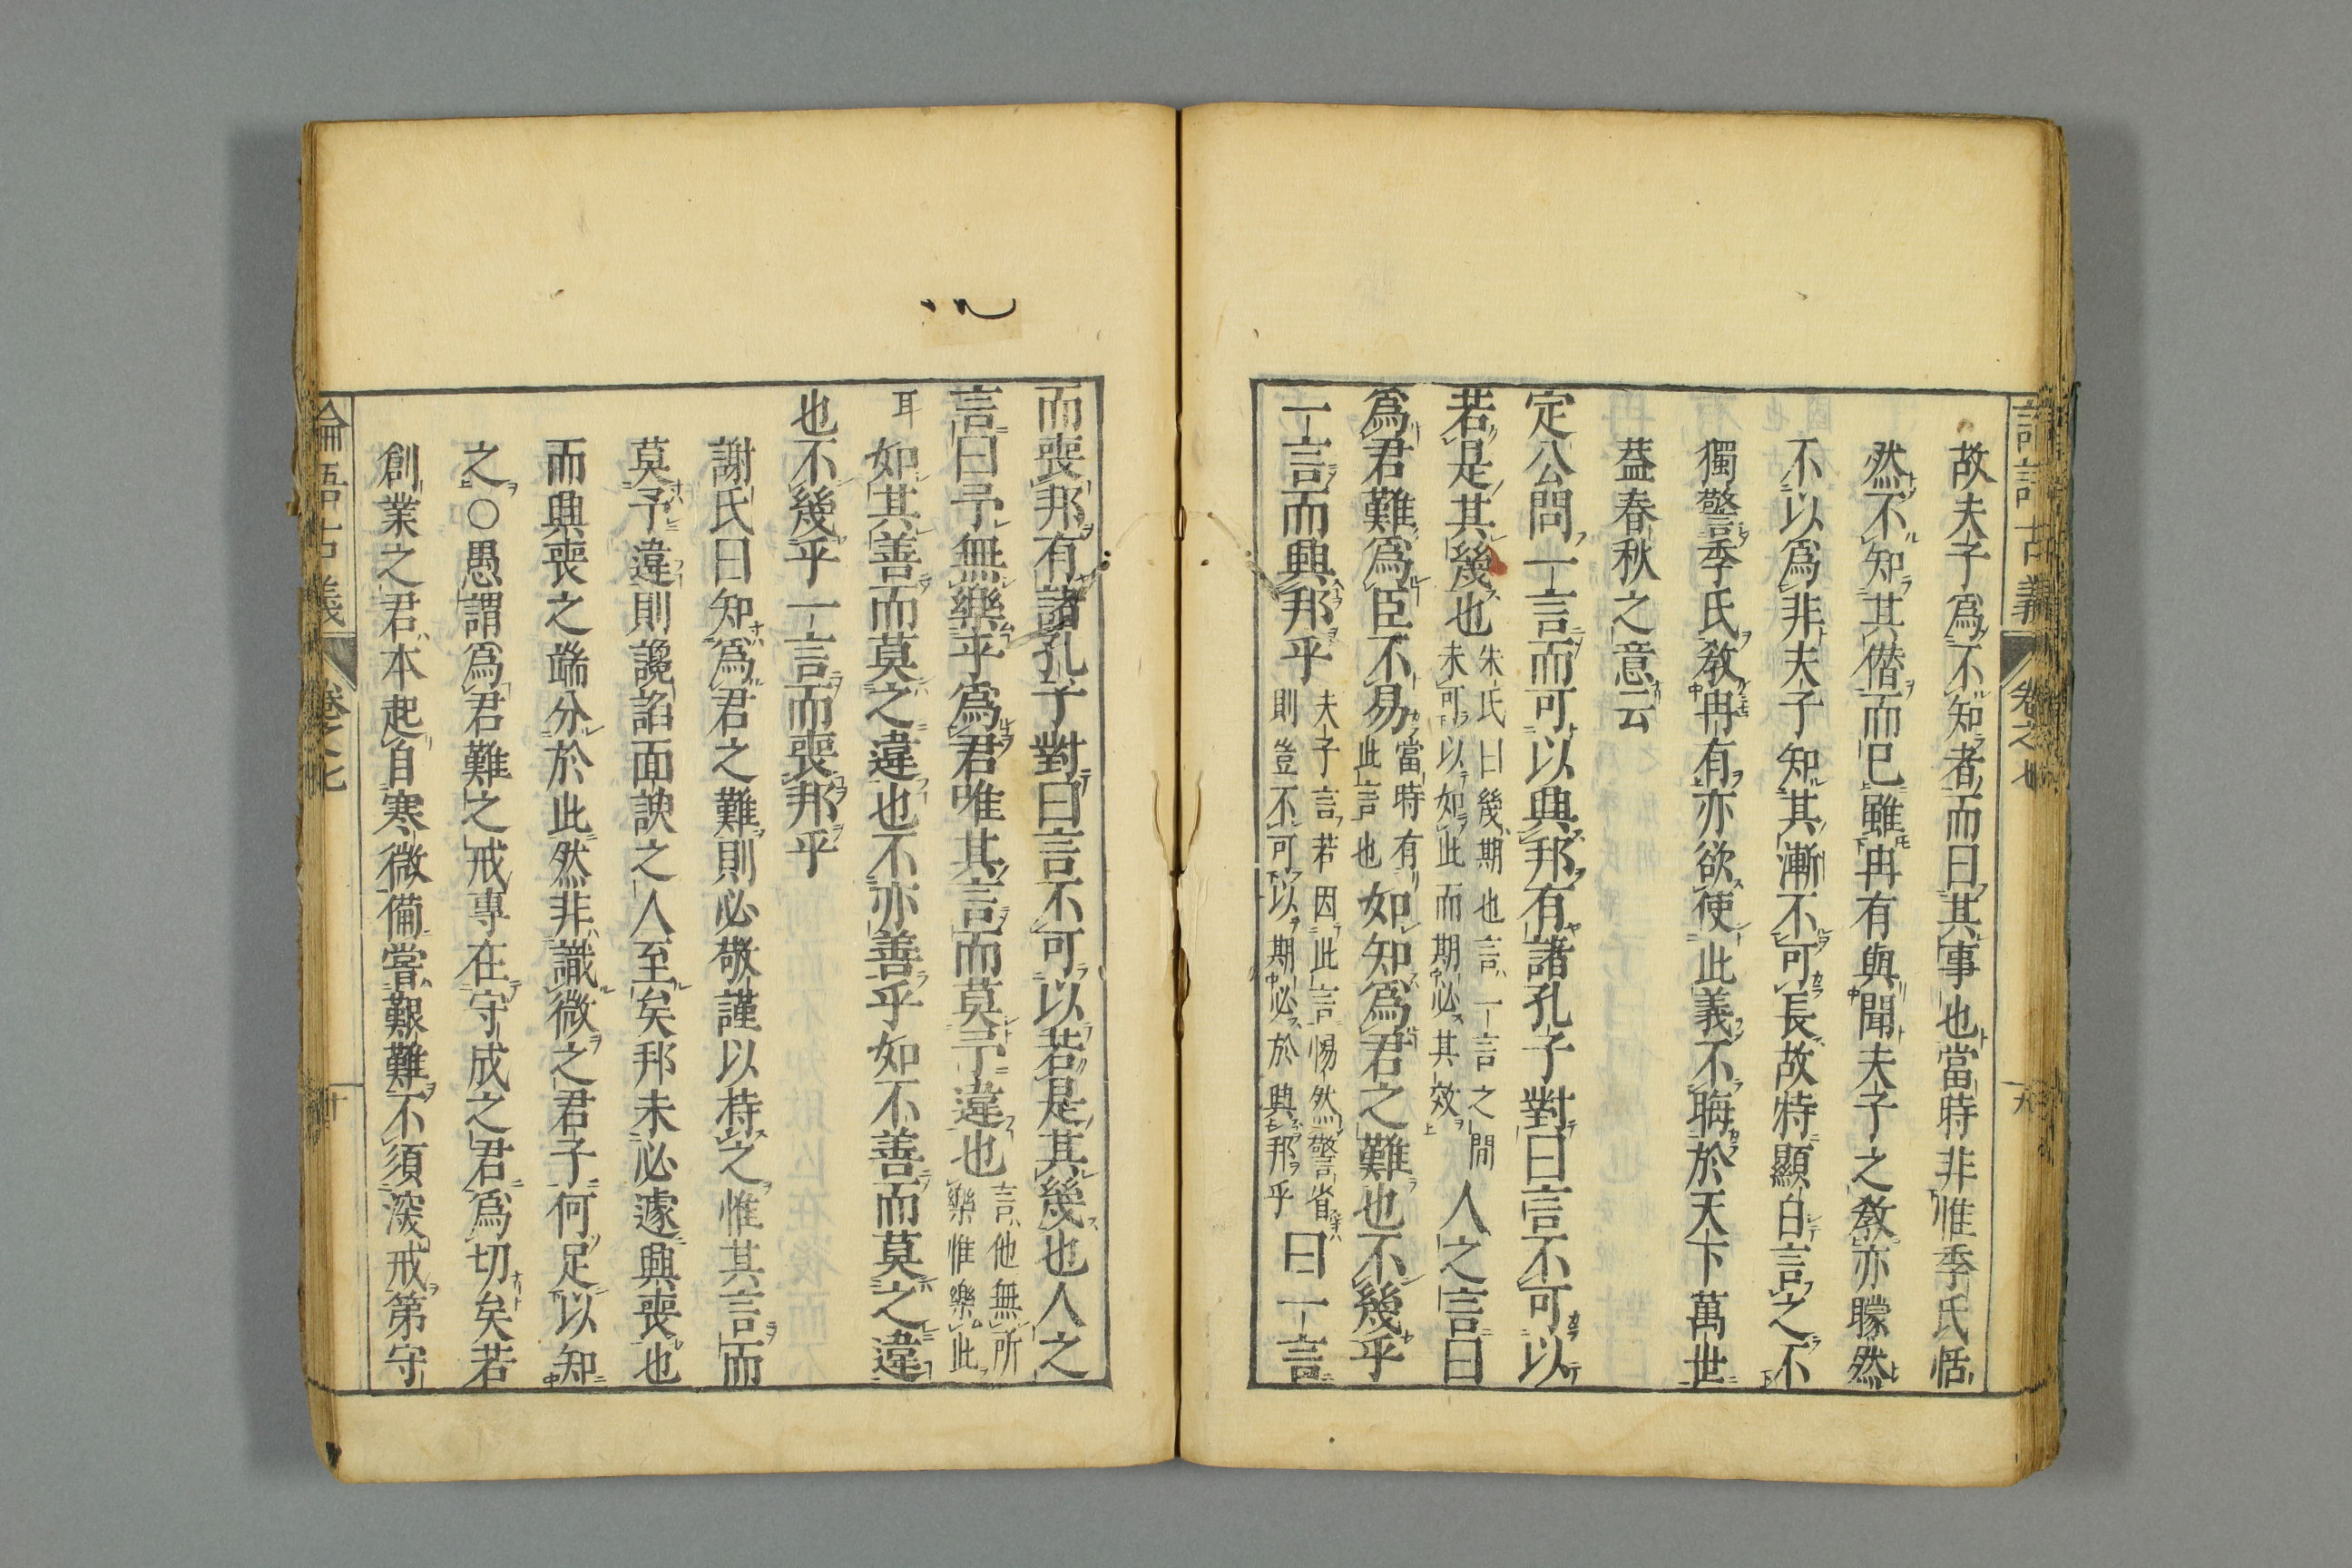 論語古義 卷之七 十九
故夫子爲不知者而曰其事也當時非惟季氏恬
然不知其僭而已雖冉有與聞夫子之敎亦曚然
不以爲非夫子知其漸不可長故特顯白言之不
獨警季氏敎冉有亦欲使此義不晦於天下萬世
葢春秋之意云
定公問一言而可以興邦有諸孔子對曰言不可以
若是其幾也
朱氏曰幾期也言一言之間
未可以如此而期必其效
人之言曰
爲君難爲臣不易
當時有
此言也
如知爲君之難也不幾乎
一言而興邦乎
夫子言若因此言惕然警省
則豈不可以期必於興邦乎
曰一言
而喪邦有諸孔子對曰言不可以若是其幾也人之
言曰予無樂乎爲君唯其言而莫予違也
言他無所
樂惟樂此
耳
如其善而莫之違也不亦善乎如不善而莫之違
也不幾乎一言而喪邦乎
謝氏曰知爲君之難則必敬謹以持之惟其言而
莫予違則讒諂面諛之人至矣邦未必遽興喪也
而興喪之端分於此然非識微之君子何足以知
之○愚謂爲君難之戒專在守成之君爲切矣若
創業之君本起自寒微備嘗艱難不須深戒第守
論語古義 卷之七